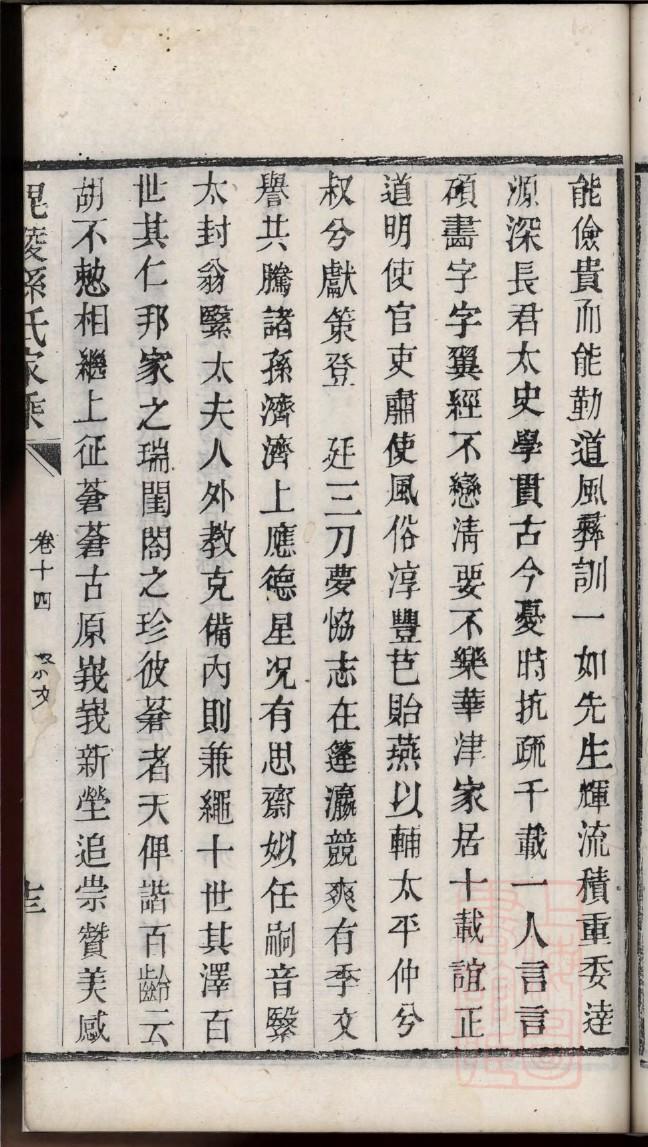 能儉貴而能勤道風彝訓一如先生輝流積重委逹
源深長君太史學貫古今憂時抗疏千載一人言言
碩畵字字翼經不戀淸要不樂華津家居十載誼正
道明使官吏肅使風俗淳豐芑貽燕以輔太平仲兮
叔兮獻策登 廷三刀夢恊志在蓬瀛競爽有季文
譽共騰諸孫濟濟上應德星况有思齋姒任嗣音繄
太封翁繄太夫人外敎克備內則兼繩十世其澤百
世其仁邦家之瑞閨閤之珍彼蒼者天俾諧百齡云
胡不憗相繼上征蒼蒼古原峩峩新塋追崇贊美感
毘陵孫氏家乘
卷十四 祭文